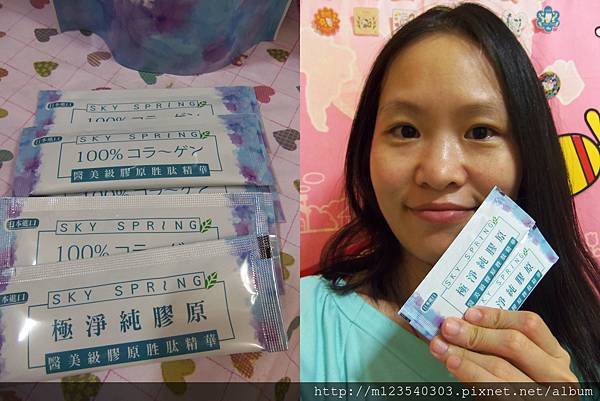 日本進口
SKY SPRING
100%コラーゲン
SKY SPRING
100%コラ〜ゲン
醫美級膠原胜肽精華
日本進口
SKY SPRING
100%コラ〜ゲン
日本進口
SKY SPRING
極淨純膠原
醫美級膠原胜肽精華
SKY SPRING
極淨純膠原
醫美級膠原胜肽精華
日本進口
http://m123540303.pixnet.net/album